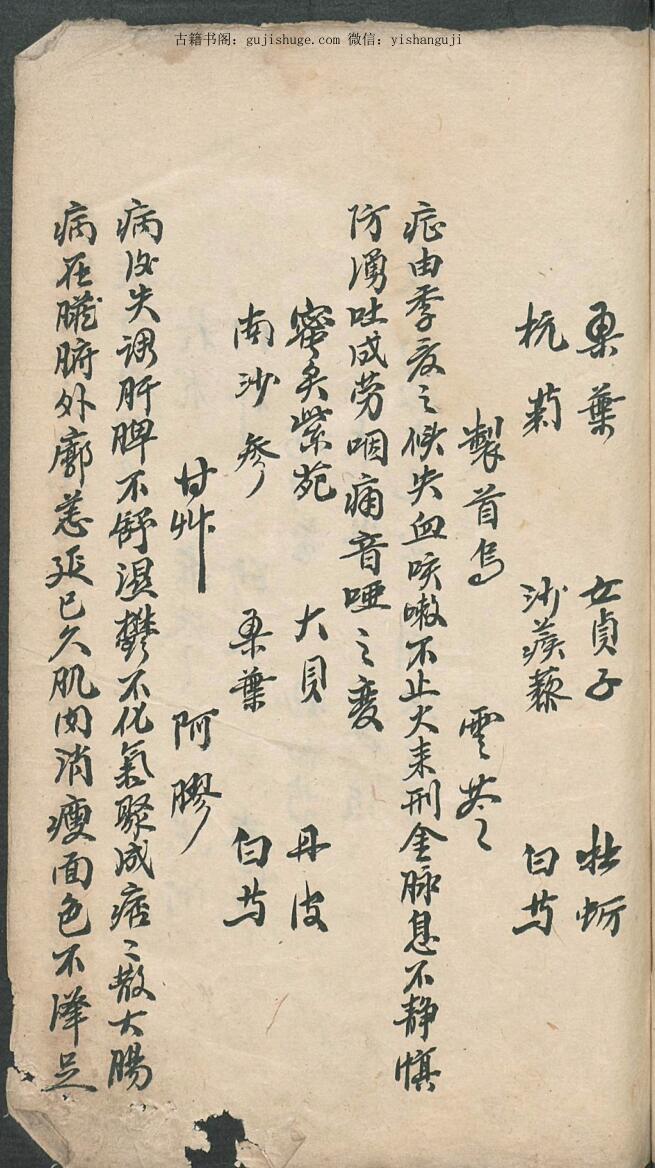 古籍书阁：gujishuge.com 微信：yishanguji
桑葉 女貞子 牡蛎
杭菊 沙蒺藜 白芍
製首烏 雲苓
症由季夏之候失血咳嗽不止火来刑金脉息不静慎
防湧吐成劳咽痛音哑之變
蜜炙紫苑 大貝 丹皮
南沙參 桑葉 白芍
甘艸 阿膠
病後失調肝脾不舒濕鬱不化氣聚成痞〻散大腸
病在臟腑外廓蔓延已久肌肉消瘦面色不澤足